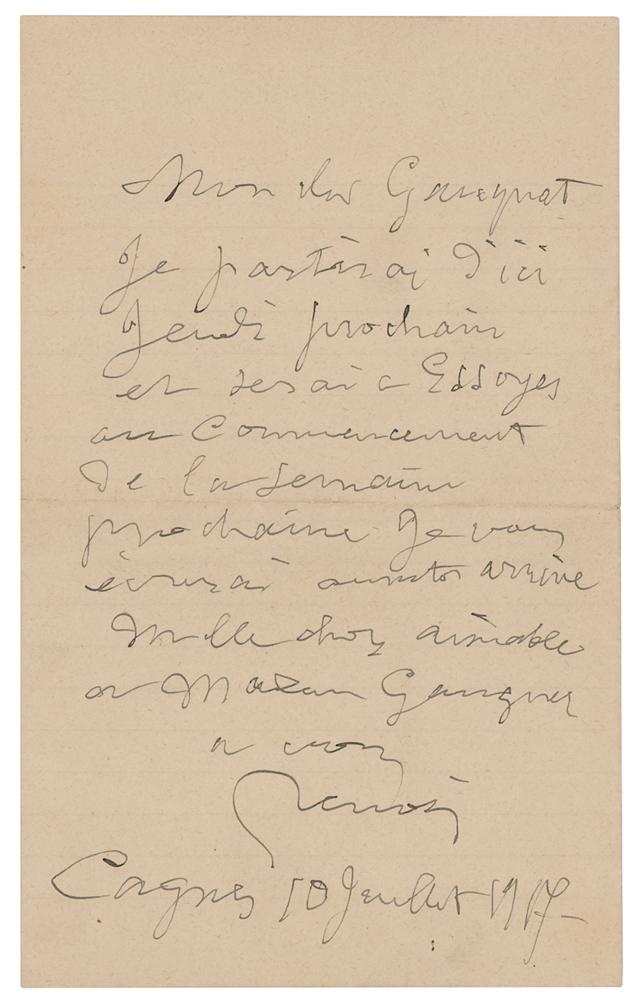 Mon cher Gangnat
Je partirai d'ici
Jeudi prochain
et serai a Essoyes
au Commencement
de la Semaine
prochaine Je vous
écrirai aussitot arrive
Mille choses aimable
a Madame Gangnat
a vous
Renoir
Cagnes 10 Juillet 1917